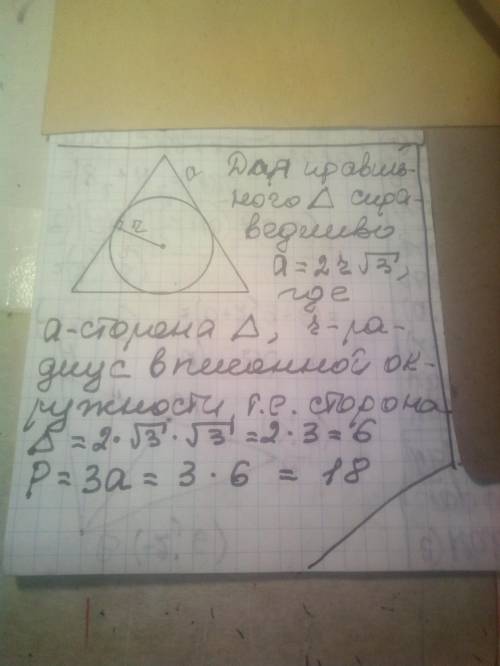 a
Для правиль-
r
ного Δ спра-
ведливо
a = 2r√3,
где
a-сторона Δ, r-ра-
диус вписанной ок-
ружности, т.е. сторона
Δ = 2·√3·√3 = 2·3 = 6
P = 3a = 3·6 = 18